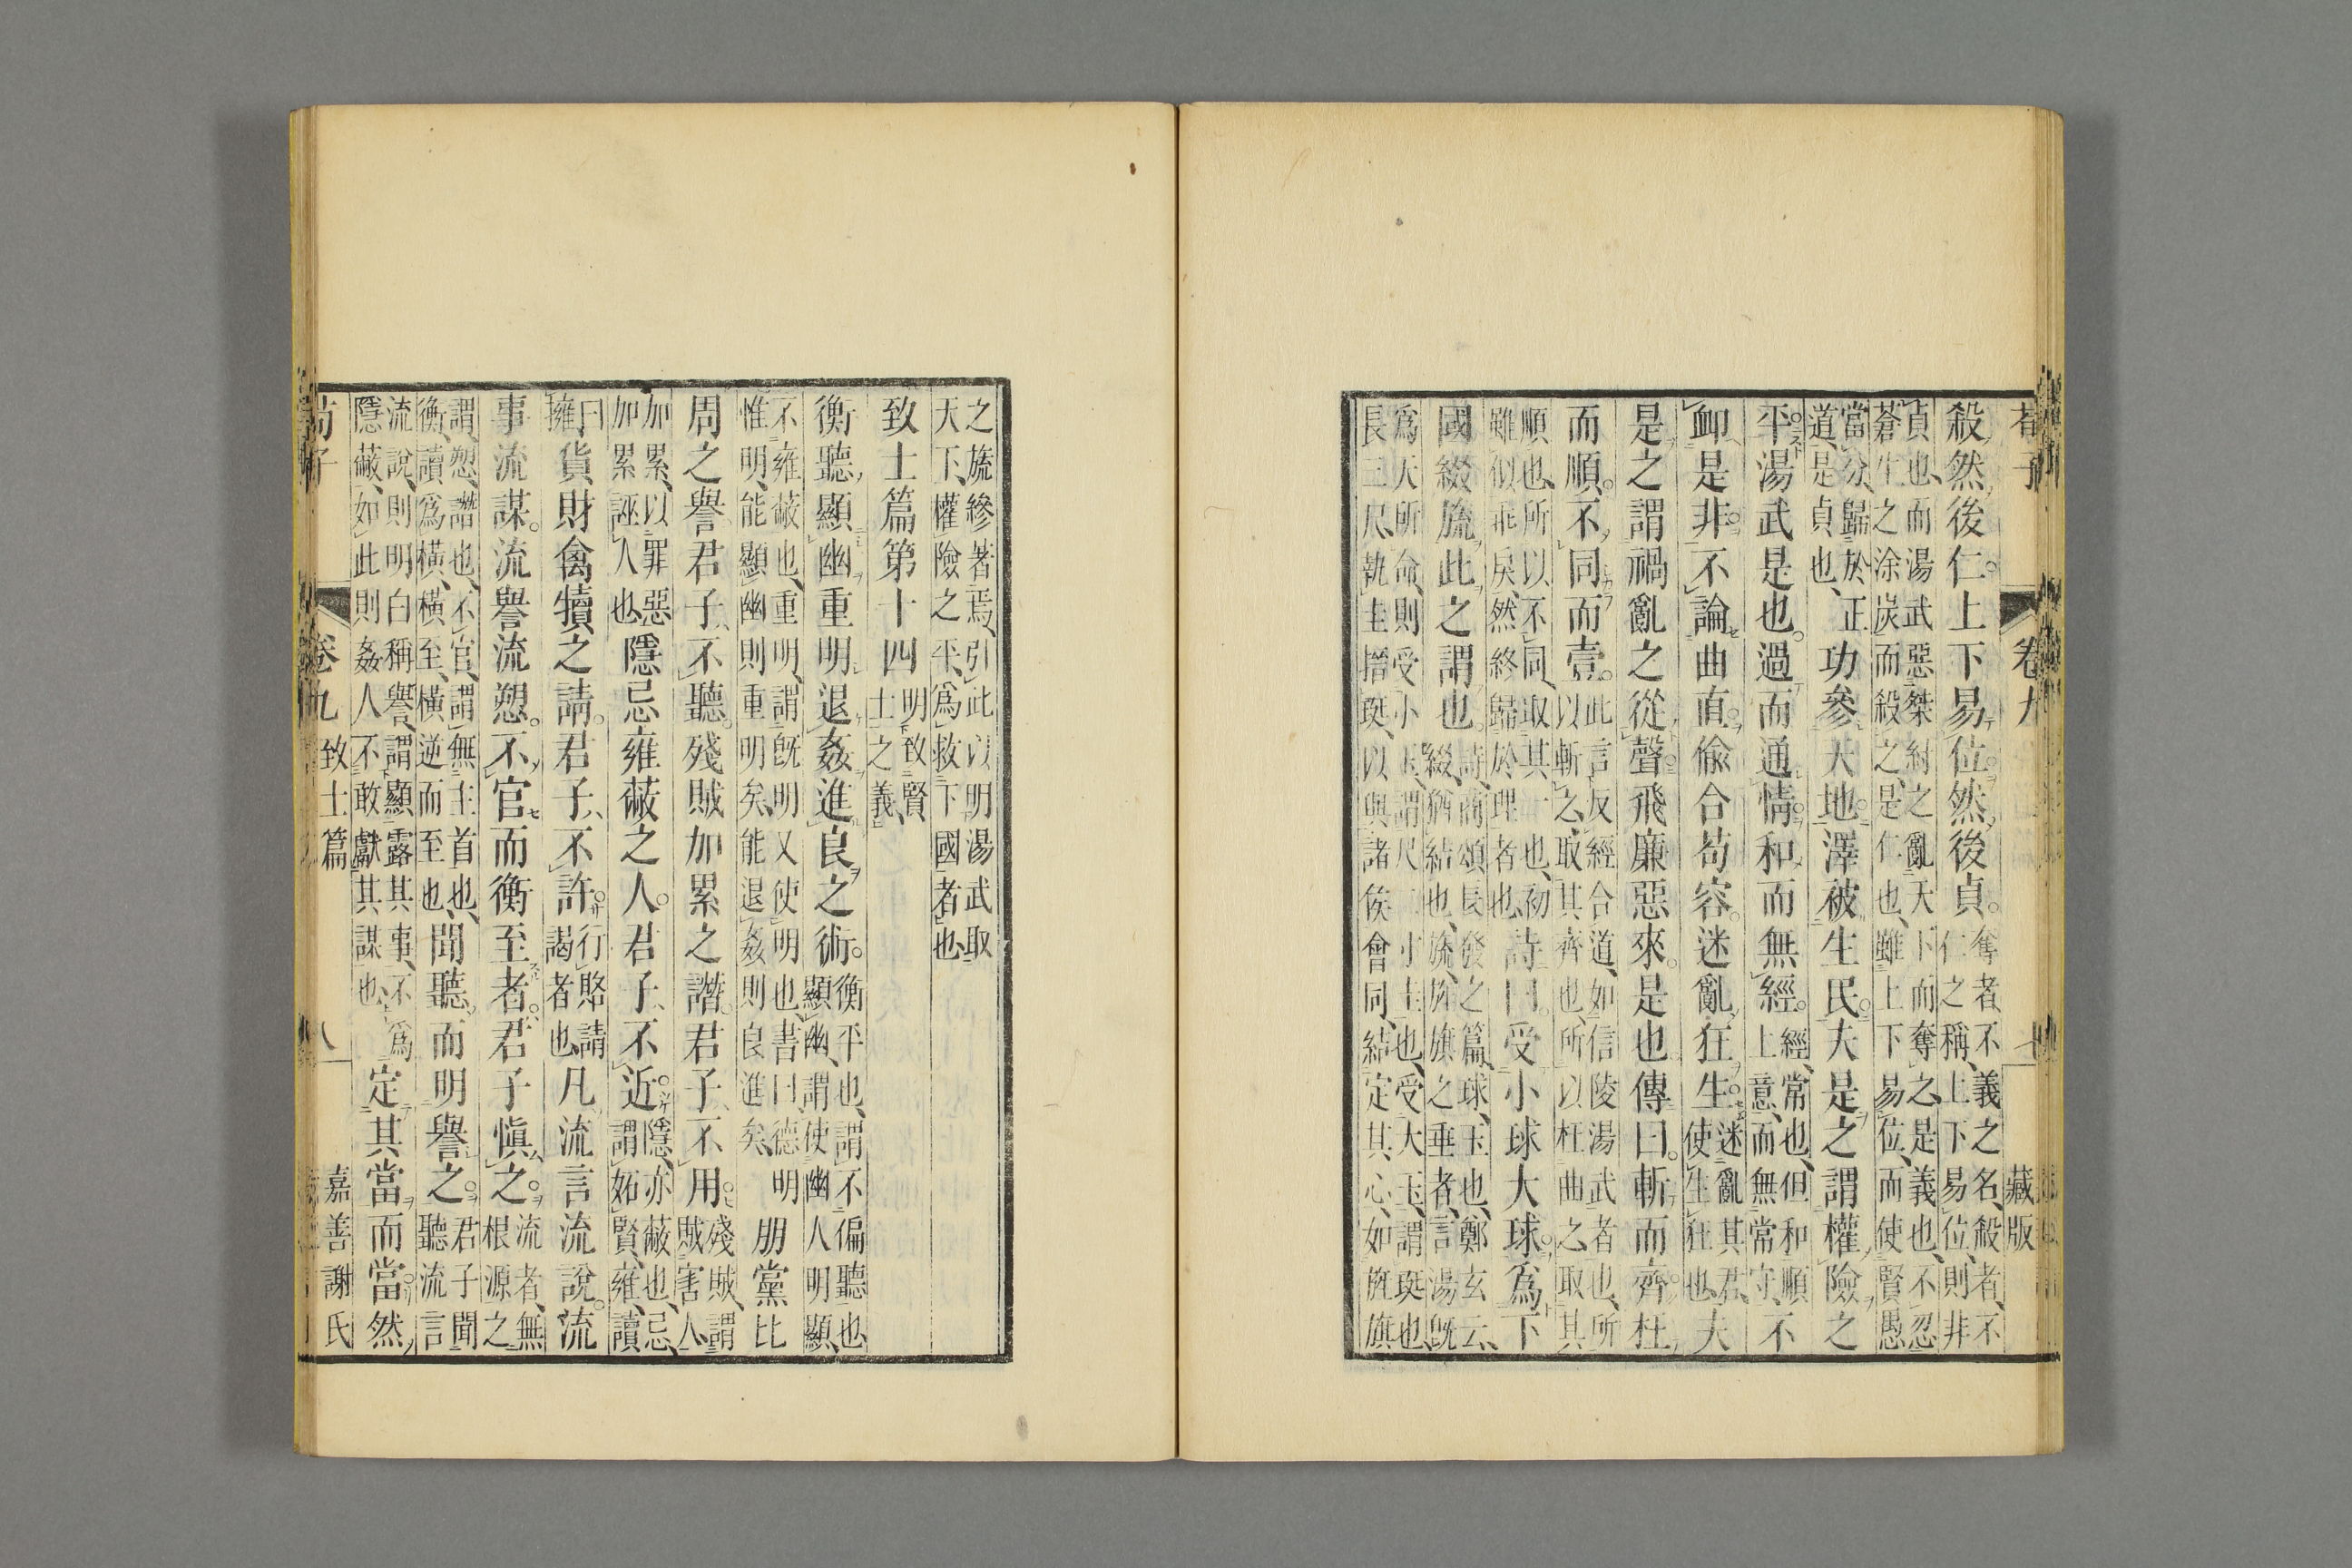 荀子　卷九　七　藏版
殺然後仁上下易位然後貞
奪者不義之名殺者不
仁之稱上下易位則非
貞也而湯武惡桀紂之亂天下而奪之是義也不忍
蒼生之涂炭而殺之是仁也雖上下易位而使賢愚
當分歸於正
道是貞也
功參天地澤被生民夫是之謂權險之
平湯武是也過而通情和而無經
經常也但和順
上意而無常守
不
卹是非不論曲直偸合苟容迷亂狂生
迷亂其君
使生狂也
夫
是之謂禍亂之從聲飛廉惡來是也傳曰斬而齊枉
而順不同而壹
此言反經合道如信陵湯武者也所
以斬之取其齊也所以枉曲之取其
順也所以不同取其一也初
雖似乖戾然終歸於理者也
詩曰受小球大球爲下
國綴旒此之謂也
詩商頌長發之篇球玉也鄭玄云
綴猶結也旒旌旗之垂者言湯旣
爲天所命則受小玉謂尺二寸圭也受大玉謂珽也
長三尺執圭搢珽以與諸侯會同結定其心如旌旗
之旒縿著焉引此以明湯武取
天下權險之平爲救下國者也
致士篇第十四
明致賢
士之義
衡聽顯幽重明退姦進良之術
衡平也謂不偏聽也
顯幽謂使幽人明顯
不雍蔽也重明謂旣明又使明也書曰德明
惟明能顯幽則重明矣能退姦則良進矣
朋黨比
周之譽君子不聽殘賊加累之譖君子不用
殘賊謂
賊害人
加累以罪惡
加累誣人也
隱忌雍蔽之人君子不近
隱亦蔽也忌
謂妬賢雍讀
曰
擁
貨財禽犢之請君子不許
行賂請
謁者也
凡流言流說流
事流謀流譽流愬不官而衡至者君子愼之
流者無
根源之
謂愬譖也不官謂無主首也
衡讀爲橫橫至橫逆而至也
聞聽而明譽之
君子聞
聽流言
流說則明白稱譽謂顯露其事不爲
隱蔽如此則姦人不敢獻其謀也
定其當而當然
荀子　卷九　致士篇　八　嘉善謝氏